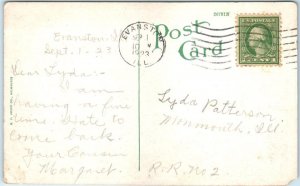 Evanston
Sept. 1-23
Post
Card
EVANSTON
ILL.
Dear Lyda:-
I am
having a fine
time. Hate to
come back.
Your Cousin
Margaret.
Lyda Patterson
Monmouth, Ill.
R.R. No 2